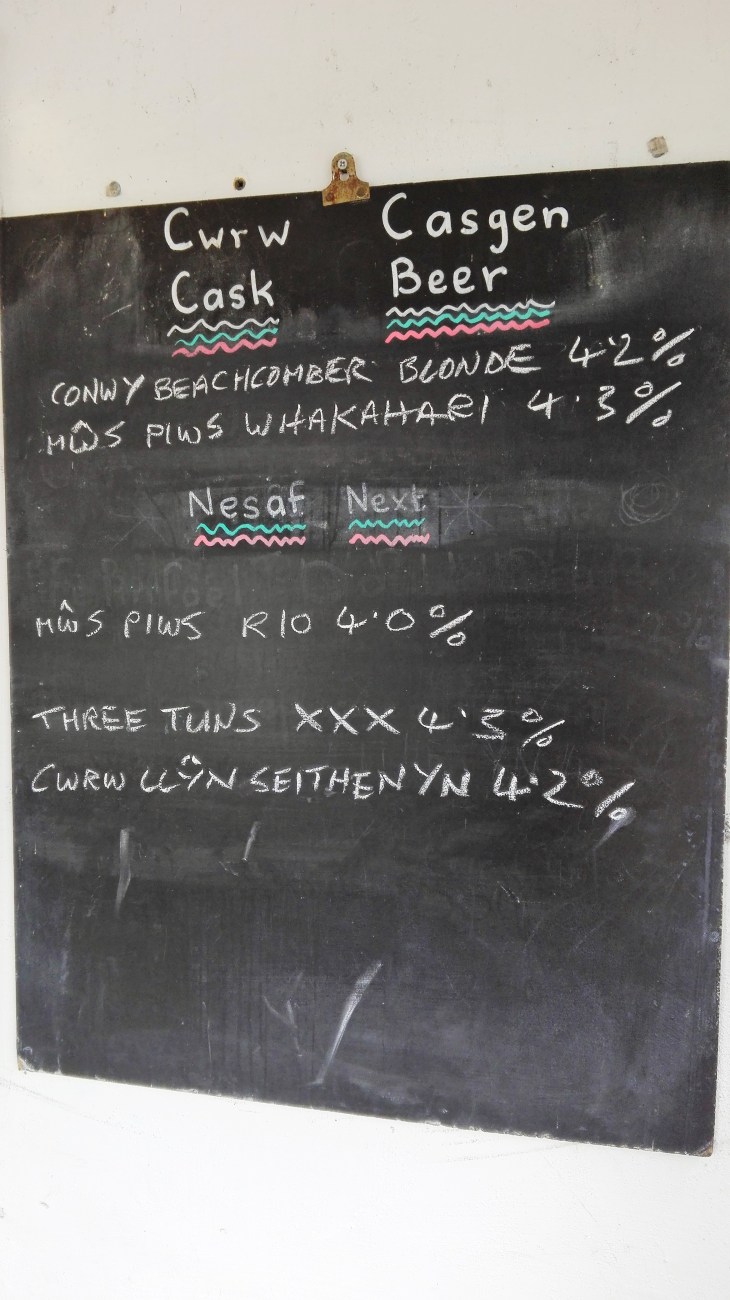 Cwrw Casgen
Cask Beer
CONWY BEACHCOMBER BLONDE 4.2%
MŴS PIWS WHAKAHARI 4.3%
Nesaf Next
MŴS PIWS RIO 4.0%
THREE TUNS XXX 4.3%
CWRW LLŶN SEITHENYN 4.2%